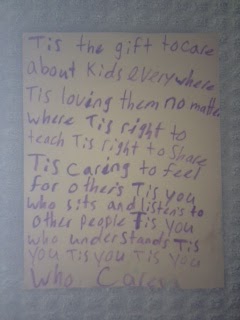 Tis the gift to care
about kids everywhere
Tis loving them no matter
where Tis right to
teach Tis right to share
Tis Caring to feel
for others Tis you
who sits and listen's to
other people Tis you
who understands Tis
you Tis you Tis you
Who Cares